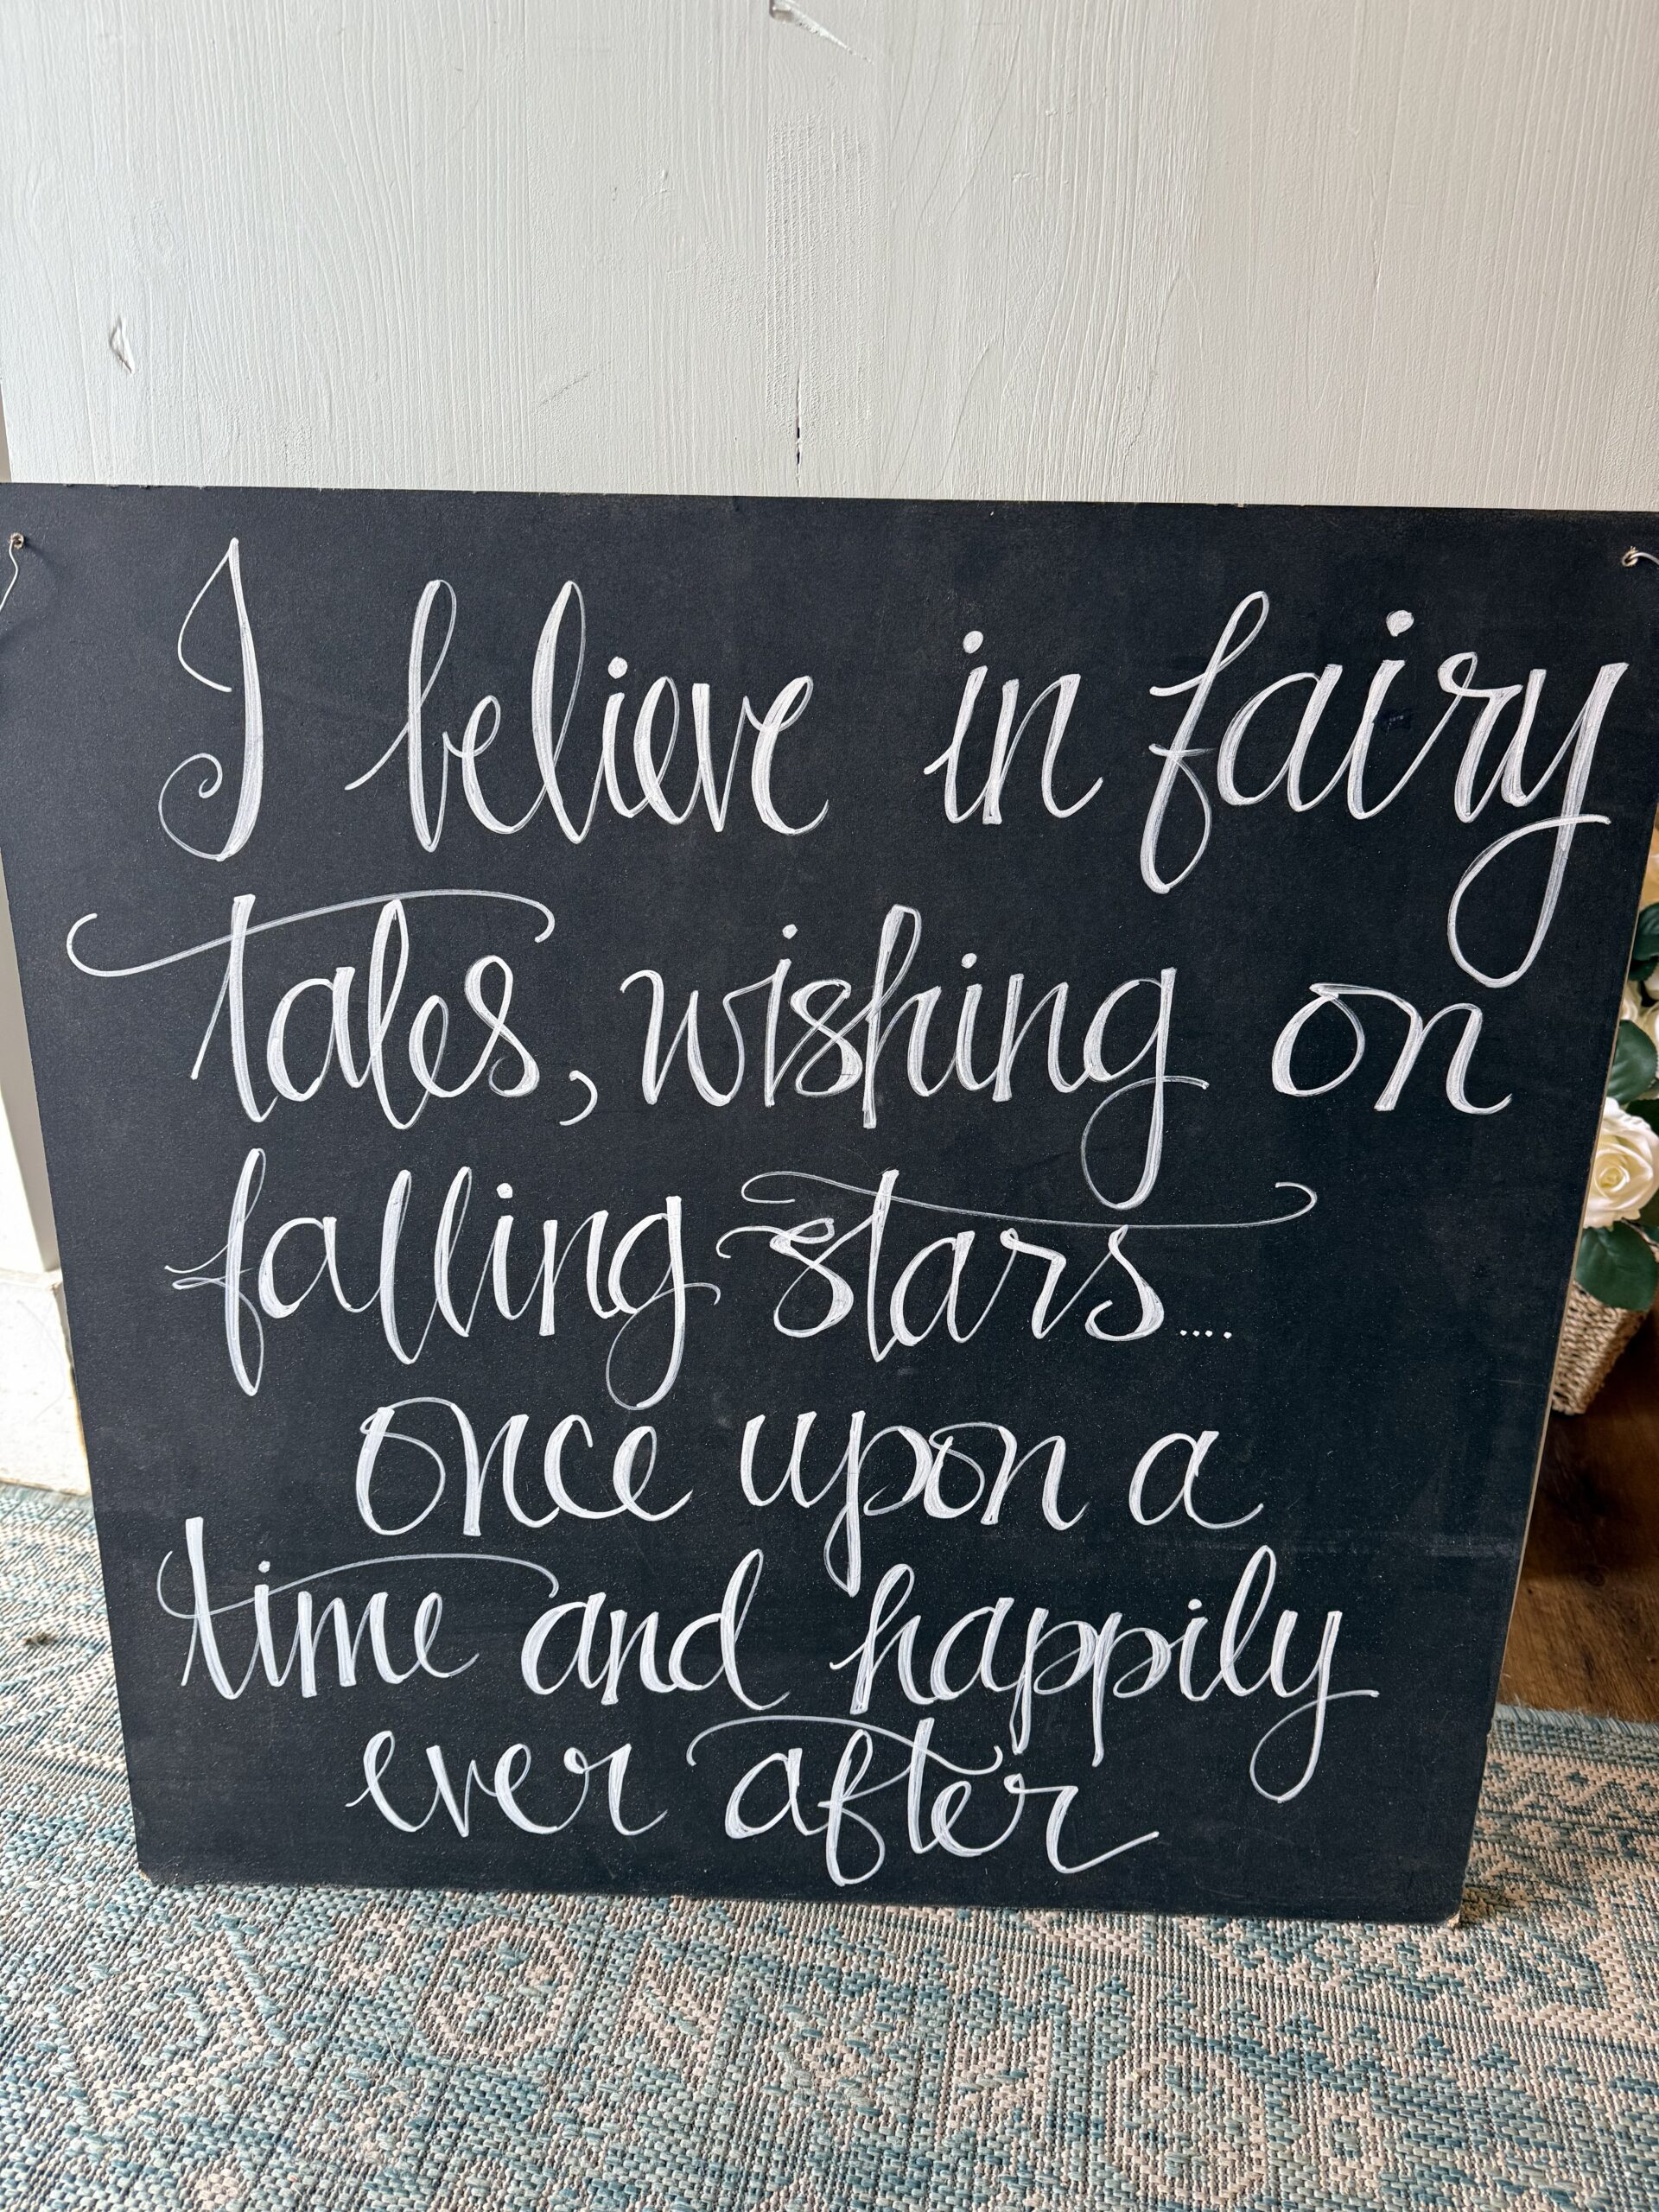 I believe in fairy
tales, wishing on
falling stars....
once upon a
time and happily
ever after